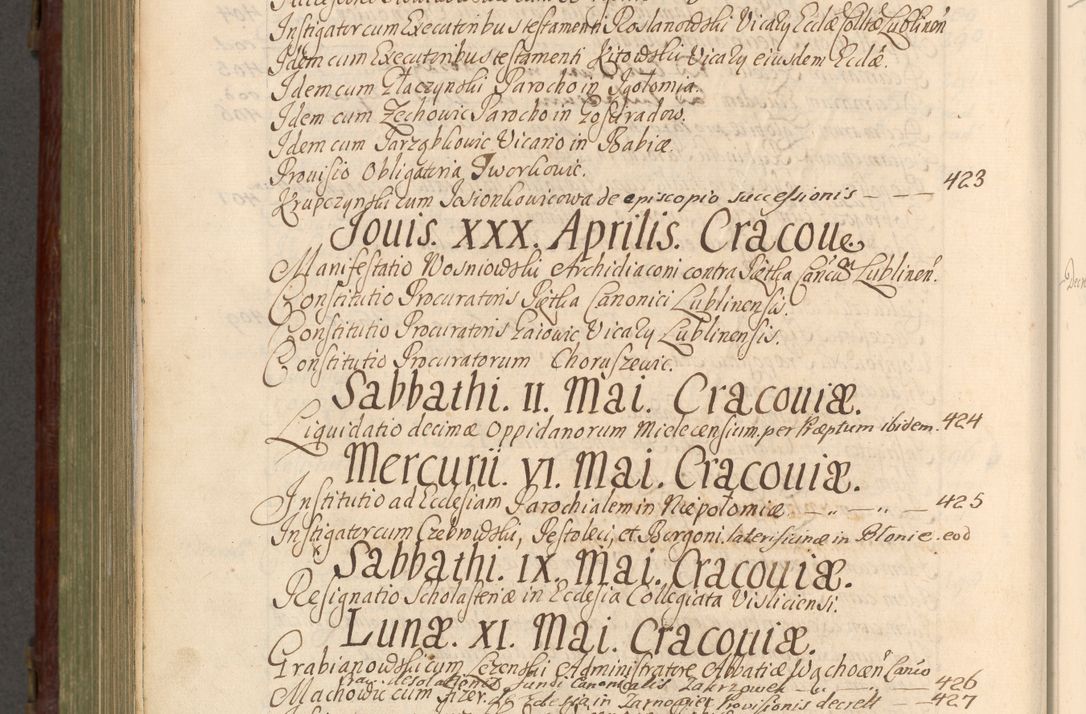 Instigator cum Executoribus testamenti Roslanowdski Vicary Ecclae Collatae Lublinen
Idem cum Executoribus testamenti Kitowski Vicary eiusdem Eccłae.
Idem cum Ptaczynski Parocho in Igołomia.
Idem cum Zechowic Parocho in
Idem cum Parząbkowic Vicario in Babiæ.
Provisio Obligatoria Dworkowic.
Krupczynski cum Josionkowicowa de episcopio successionis — — — 423
Jouis. XXX. Aprilis. Cracouæ
Manifestatio Wosniowdski Archidiaconi contra Piętka Lublinen.
Constitutio Procuratoris Piętka Canonici Lublinensis.
Constitutio Procuratoris Gaiowic Vicary Lublinensis.
Constitutio Procuratorum Choruszewic.
Sabbathi. II. Mai. Cracouiæ.
Liquidatio decimæ Oppidanorum Mielecensium. per Præptum ibidem. 424
Mercurii. VI. Mai. Cracouiæ.
Institutio ad Ecclesiam Parochialem in Niepołomicæ — „ — „ — 425
Instigator cum Czebrowdski, Pestoleci, et Burgoni. laterisiunæ in Błonie. eod
Sabbathi. IX. Mai. Cracouiæ.
Resignatio Scholasteriæ in Ecclesia Collegiata Visliciensi.
Lunæ. XI. Mai. Cracouiæ.
Grabianowdski cum Lezenski Administratore Abbatiæ Wąchocen
rāe desolationis fundi Canonicalis Zakrzowek — „ — 426
Machowic cum in Tarnogiet Provisionis decrett — — 427